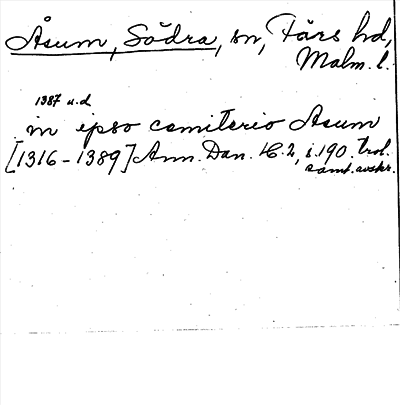 Åsum, Södra, sn, Färs hd,
Malm. l.
1387 u.d
in ipso cemiterio Asum
[1316-1389] Ann. Dan. H. 2, s. 190. Trol.
samt. avskr.